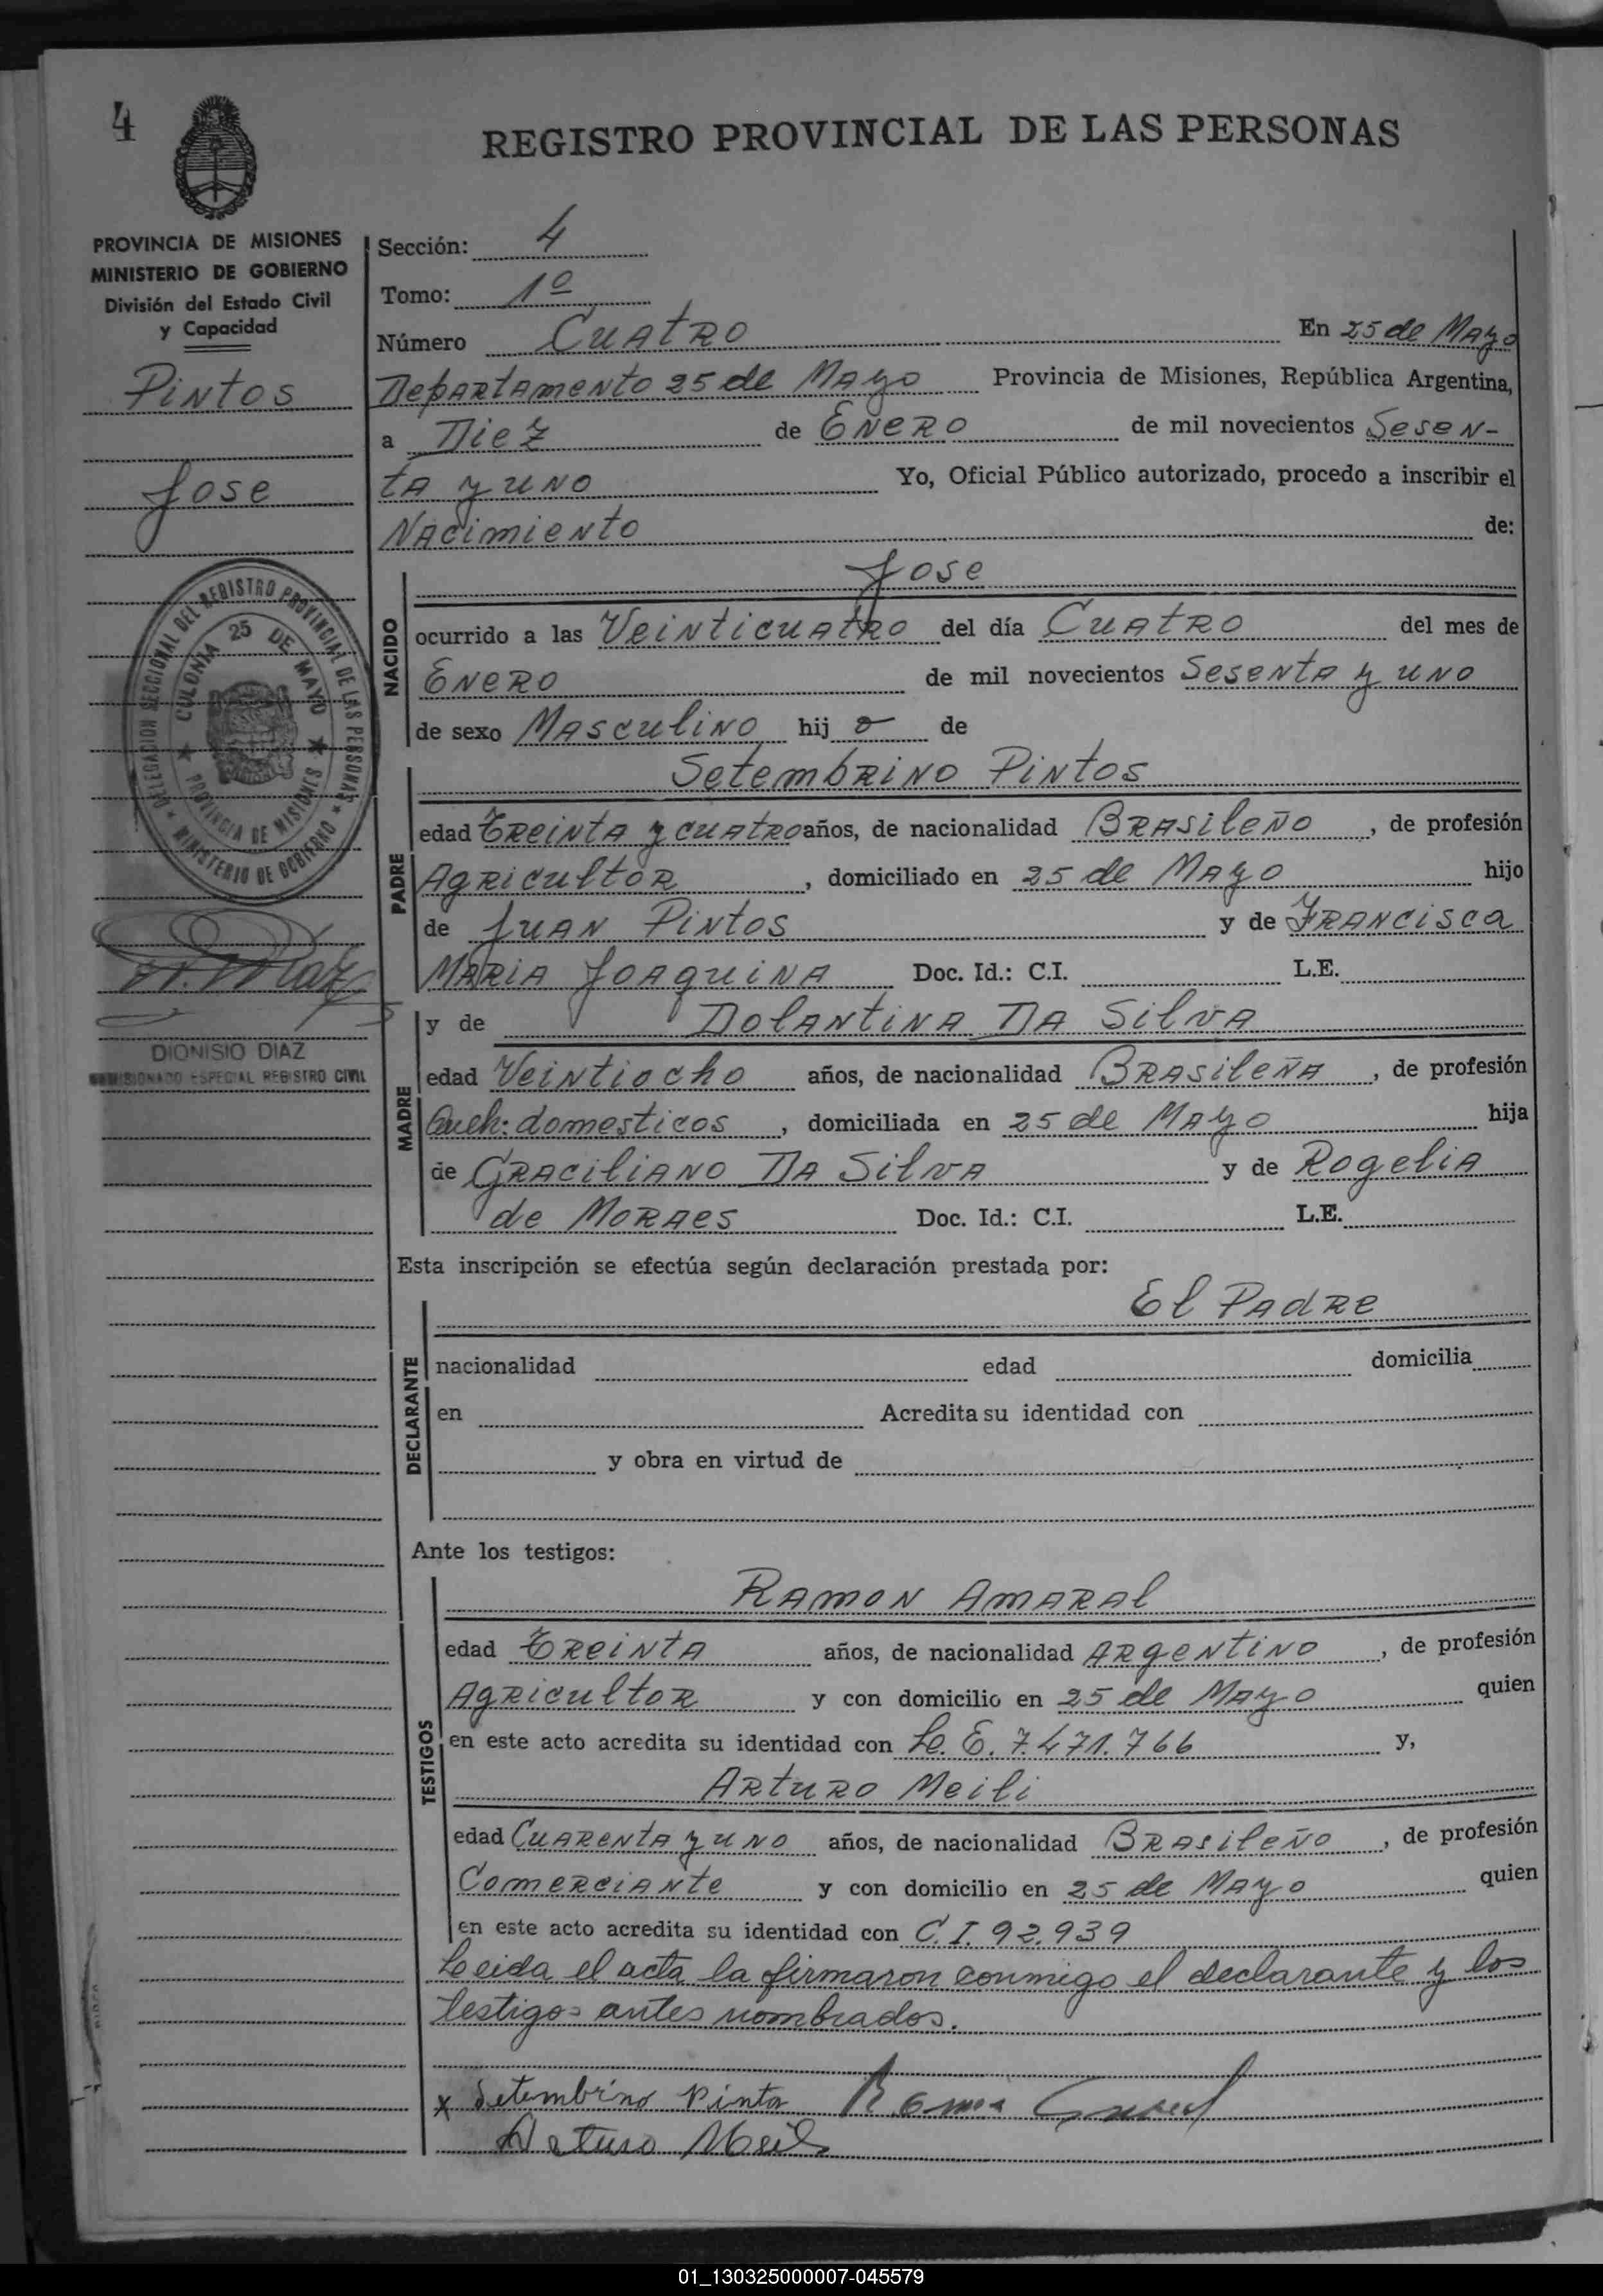 4
REGISTRO PROVINCIAL DE LAS PERSONAS
PROVINCIA DE MISIONES
MINISTERIO DE GOBIERNO
División del Estado Civil
y Capacidad
Pintos
Jose
DELEGACION SECCIONAL DEL REGISTRO PROVINCIAL DE LAS PERSONAS
MINISTERIO DE GOBIERNO
COLONIA 25 DE MAYO
PROVINCIA DE MISIONES
DIONISIO DIAZ
ESPECIAL REGISTRO CIVIL
Sección: 4
Tomo: 1º
Número Cuatro En 25 de Mayo
Departamento 25 de Mayo Provincia de Misiones, República Argentina,
a Diez de Enero de mil novecientos Sesen-
ta y uno Yo, Oficial Público autorizado, procedo a inscribir el
Nacimiento de:
NACIDO
Jose
ocurrido a las Veinticuatro del día Cuatro del mes de
Enero de mil novecientos Sesenta y uno
de sexo Masculino hijo de
PADRE
Setembrino Pintos
edad Treinta y cuatro años, de nacionalidad Brasileño, de profesión
Agricultor, domiciliado en 25 de Mayo hijo
de Juan Pintos y de Francisca
Maria Joaquina Doc. Id.: C.I. L.E.
MADRE
y de Dolantina Da Silva
edad Veintiocho años, de nacionalidad Brasileña, de profesión
Queh: domesticos, domiciliada en 25 de Mayo hija
de Graciliano Da Silva y de Rogelia
de Moraes Doc. Id.: C.I. L.E.
Esta inscripción se efectúa según declaración prestada por:
DECLARANTE
El Padre
nacionalidad edad domicilia
en Acredita su identidad con
y obra en virtud de
Ante los testigos:
TESTIGOS
Ramon Amaral
edad Treinta años, de nacionalidad Argentino, de profesión
Agricultor y con domicilio en 25 de Mayo quien
en este acto acredita su identidad con L. E. 7.471.766 y,
Arturo Meili
edad Cuarenta y uno años, de nacionalidad Brasileño, de profesión
Comerciante y con domicilio en 25 de Mayo quien
en este acto acredita su identidad con C. I. 92.939
Leida el acta la firmaron conmigo el declarante y los
testigos antes nombrados.
x Setembrino Pinto
Arturo Meili
01_130325000007-045579